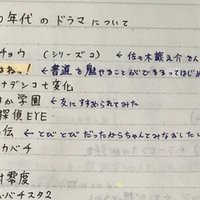 0年代のドラマについて
チョウ (シリーズ2) ←佐々木蔵之介さん
はねっ! ←書道を魅せることができるってはじめ
ナデシコ七変化
か学園 ←友にすすめられてみた
探偵EYE
伝 ←とびとびだったからちゃんとみなおしたい
カバチ
対零度
バチスタ2